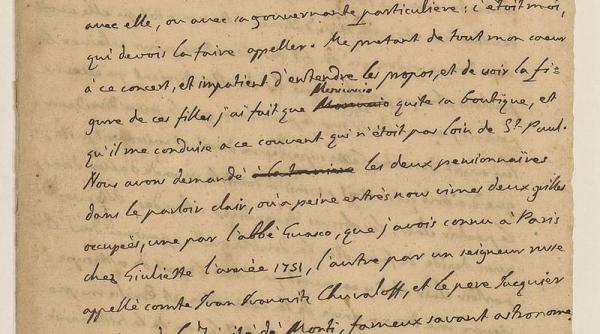 avec elle, ou avec sa gouvernante particuliere : c'étoit moi,
qui devois la faire appeller. Me pretant de tout mon coeur
à ce concert, et impatient d'entendre les propos, et de voir la fi=
gure de ces filles, j'ai fait que Momolo quite sa boutique, et
qu'il me conduise a ce couvent qui n'étoit pas loin de S.t Paul.
Nous avons demandé à la tourriere les deux pensionnaires
dans le parloir clair, où a peine entrés nous vimes deux grilles
occupées, une par l'abbé Guasco, que j'avois connu à Paris
chez Giuliette l'année 1751, l'autre par un seigneur russe
appellé comte Ivan Ivanovitz Chuvaloff, et le pere Jacquier
de la Trinité de Monti, fameux savant astronome.